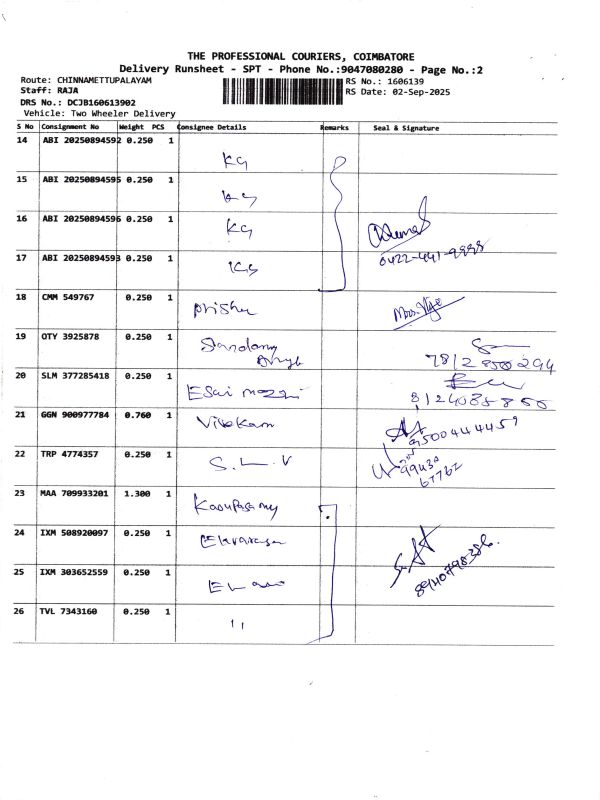 THE PROFESSIONAL COURIERS, COIMBATORE
Delivery Runsheet - SPT - Phone No.:9047080280 - Page No.:2
Route: CHINNAMETTUPALAYAM RS No.: 1606139
Staff: RAJA RS Date: 02-Sep-2025
DRS No.: DCJB160613902
Vehicle: Two Wheeler Delivery
S No Consignment No Weight PCS Consignee Details Remarks Seal & Signature
14 ABI 20250894592 0.250 1
KG
15 ABI 20250894595 0.250 1
KG
16 ABI 20250894596 0.250 1
KG
17 ABI 20250894593 0.250 1
KG 0422-441-9998
18 CMM 549767 0.250 1
19 OTY 3925878 0.250 1
7812850294
20 SLM 377285418 0.250 1
Esai
21 GGN 900977784 0.760 1
Vivekam 9500444459
22 TRP 4774357 0.250 1
S.L.V 99430
67762
23 MAA 709933201 1.300 1
24 IXM 508920097 0.250 1
25 IXM 303652559 0.250 1
26 TVL 7343160 0.250 1
11